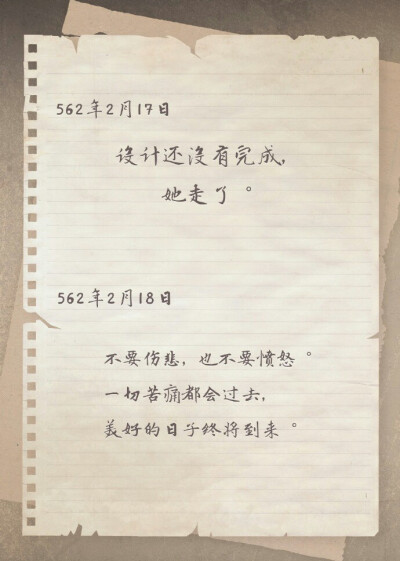 562年2月17日
设计还没有完成，
她走了。
562年2月18日
不要伤悲，也不要愤怒。
一切苦痛都会过去，
美好的日子终将到来。